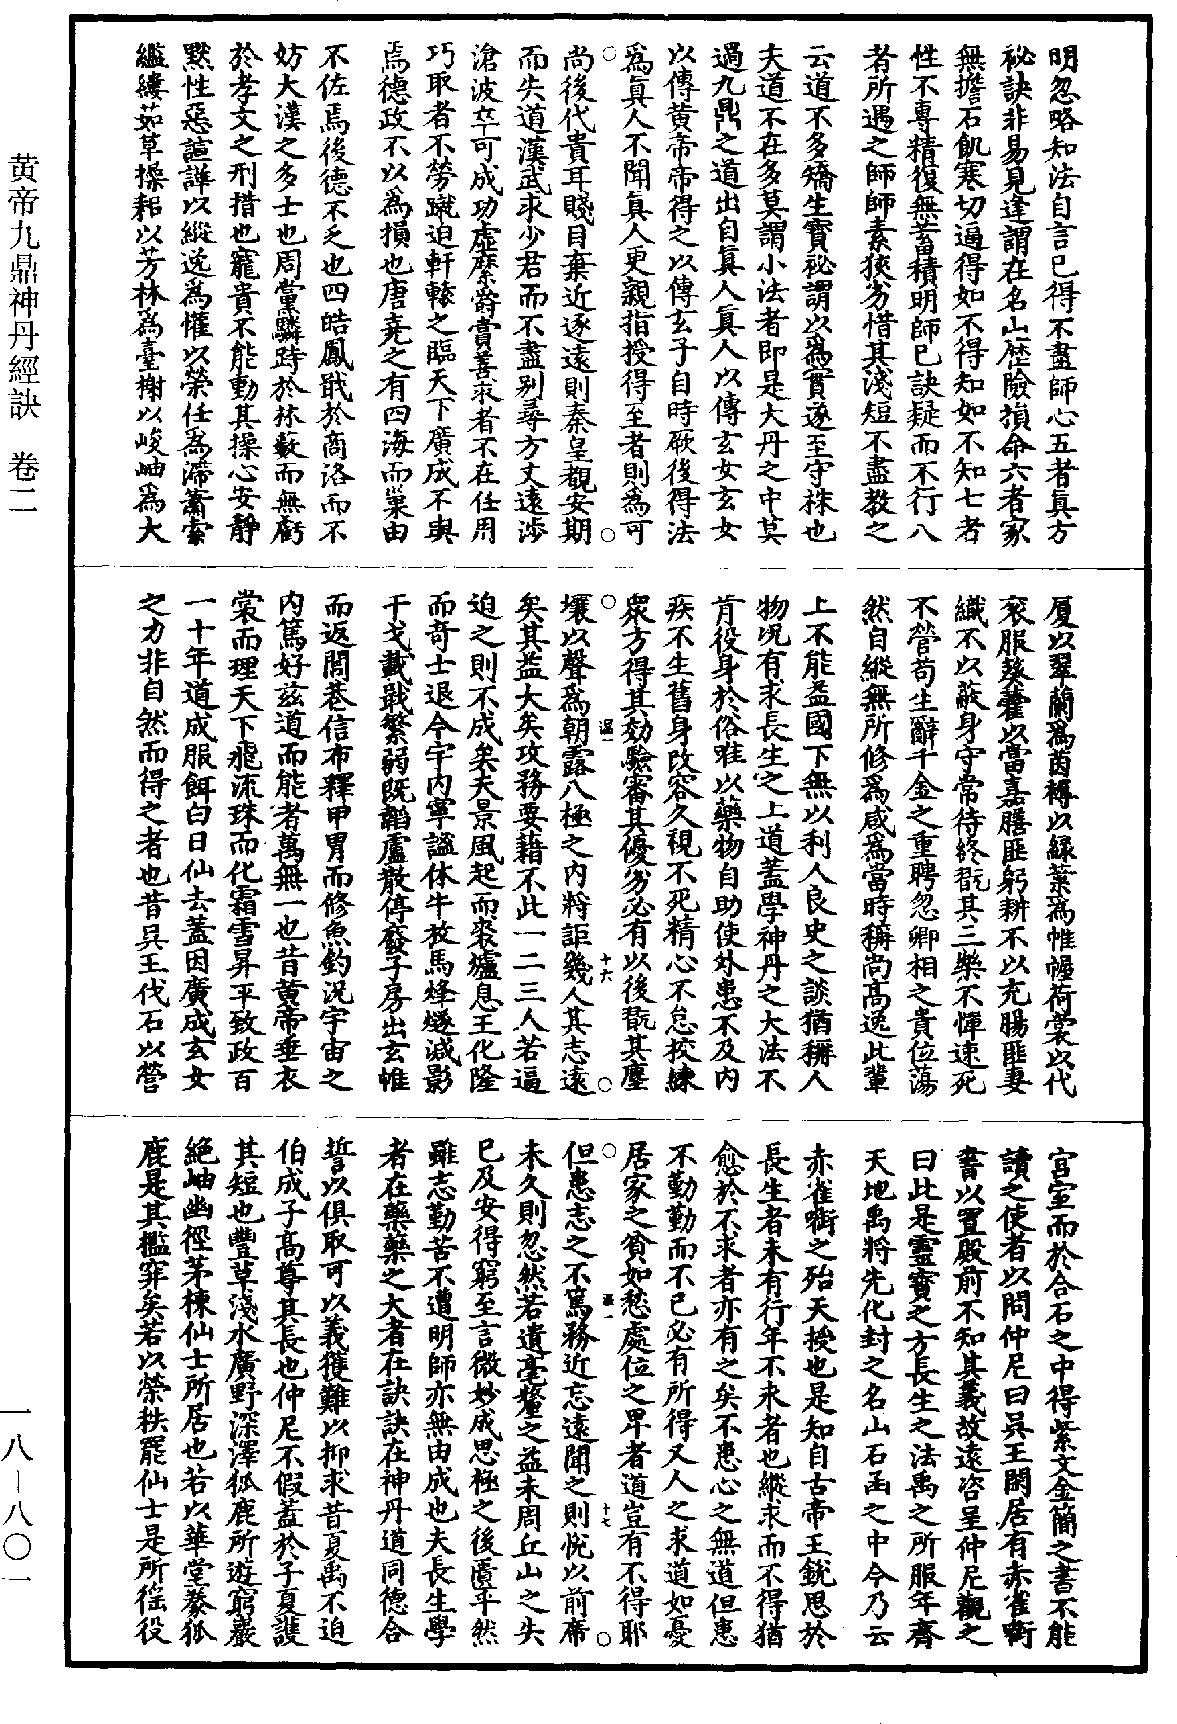 明忽略知法自言已得不盡師心五者真方
祕訣非易見逢謂在名山歷險損命六者家
無擔石飢寒切逼得如不得知如不知七者
性不專精復無蓄積明師已訣疑而不行八
者所遇之師師素狹劣惜其淺短不盡教之
云道不多矯生寶祕謂以為實遂至守株也
夫道不在多莫謂小法者即是大丹之中莫
過九鼎之道出自真人真人以傳玄女玄女
以傳黃帝帝得之以傳玄子自時厥後得法
為真人不聞真人更親指授得至者則為可
尚後代貴耳賤目棄近逐遠則秦皇觀安期
而失道漢武求少君而不盡別尋方丈遠涉
滄波卒可成功虛縻爵賞善求者不在任用
巧取者不勞蹴迫軒轅之臨天下廣成不與
焉德政不以為損也唐堯之有四海而巢由
不佐焉後德不乏也四皓鳳戢於商洛而不
妨大漢之多士也周黨驎跱於林藪而無虧
於孝文之刑措也寵貴不能動其操心安靜
黙性惡諠譁以縱逸為懽以榮任為滯蕭索
繿縷茹草操耜以芳林為臺榭以峻岫為大
厦以翠蘭為茵褥以綠葉為帷幄荷裳以代
衮服葵藿以當嘉膳匪躬耕不以充腸匪妻
織不以蔽身守常待終翫其三樂不憚速死
不營苟生辭千金之重聘忽卿相之貴位蕩
然自縱無所修為咸為當時稱尚高逸此輩
上不能益國下無以利人良史之談猶稱人
物况有求長生之上道蓋學神丹之大法不
肯役身於俗唯以藥物自助使外患不及内
疾不生舊身改容久視不死精心不怠挍練
衆方得其効驗審其優劣必有以後翫其塵
壤以聲為朝露八極之内將詎幾人其志遠
矣其益大矣攻務要藉不此一二三人若逼
迫之則不成矣夫景風起而裘爐息王化隆
而奇士退今宇内寧謐休牛放馬烽燧減影
干戈載戢繁弱既韜盧散停廢子房出玄帷
而返閭巷信布釋甲胄而修魚釣况宇宙之
内篤好茲道而能者萬無一也昔黃帝垂衣
裳而理天下飛流珠而化霜雪昇平致政百
一十年道成服餌白日仙去蓋因廣成玄女
之力非自然而得之者也昔吳王伐石以營
宮室而於合石之中得紫文金簡之書不能
讀之使者以問仲尼曰吳王閑居有赤雀銜
書以置殿前不知其義故遠咨呈仲尼觀之
曰此是靈寶之方長生之法禹之所服年齊
天地禹將先化封之名山石函之中今乃云
赤雀銜之殆天授也是知自古帝王銳思於
長生者未有行年不來者也縱求而不得猶
愈於不求者亦有之矣不患心之無道但患
不勤勤而不已必有所得又人之求道如憂
居家之貧如愁處位之卑者道豈有不得耶
但患志之不篤務近忘遠聞之則悅以前席
未久則忽然若遺毫釐之益未周丘山之失
已及安得窮至言微妙成思極之後匱乎然
雖志勤苦不遭明師亦無由成也夫長生學
者在藥藥之大者在訣訣在神丹道同德合
誓以俱取可以義獲難以抑求昔夏禹不迫
伯成子高尊其長也仲尼不假蓋於子夏護
其短也豐草淺水廣野深澤狐鹿所遊窮巖
絕岫幽徑茅棟仙士所居也若以華堂豢狐
鹿是其檻穽矣若以榮秩罷仙士是所徭役
温一
十六
温一
十七
黄帝九鼎神丹經訣 卷二
一八—八〇一